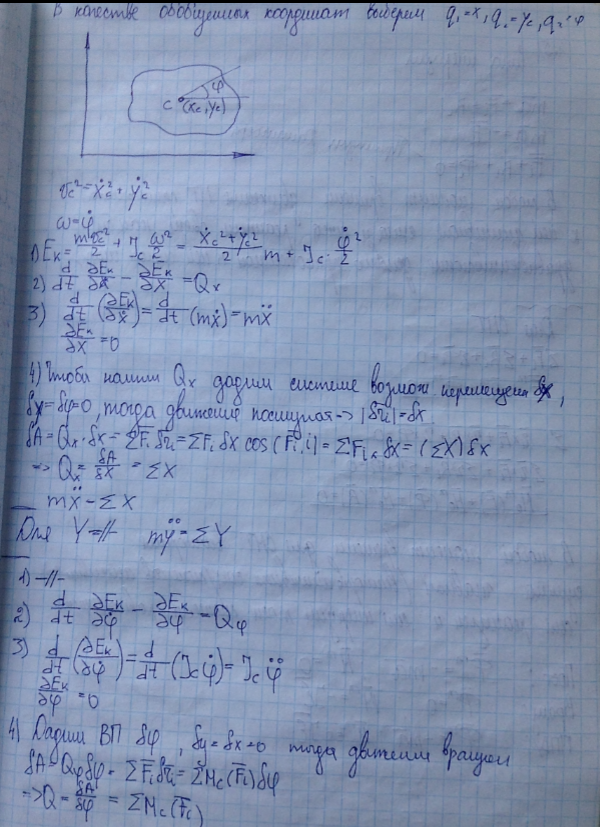 В качестве обобщенных координат выберем q₁=x, q₂=y_c, q₂=φ
φ
C (x_c, y_c)
v_c²=ẋ_c²+ẏ_c²
ω=φ̇
1) E_k = mv_c²/2 + J_c ω²/2 = (ẋ_c²+ẏ_c²)/2 · m + J_c · φ̇²/2
2) d/dt ∂E_k/∂ẋ − ∂E_k/∂x = Q_x
3) d/dt (∂E_k/∂ẋ) = d/dt (mẋ) = mẍ
∂E_k/∂x = 0
4) Чтобы найти Q_x дадим системе возможн перемещен δx,
δy=δφ=0, тогда движение поступат -> |δr̄ᵢ|=δx
δA=Q_x·δx=ΣF̄ᵢδr̄ᵢ=ΣFᵢ δx cos(F̄ᵢ,i)=ΣFᵢₓ δx=(ΣX)δx
=> Q_x = δA/δx = ΣX
mẍ − ΣX
Для Y =//- mÿ = ΣY
1) -//-
2) d/dt ∂E_k/∂φ̇ − ∂E_k/∂φ = Q_φ
3) d/dt (∂E_k/∂φ̇) = d/dt (J_c φ̇) = J_c φ̈
∂E_k/∂φ = 0
4) Дадим ВП δφ, δy=δx=0 тогда движение вращат
δA=Q_φδφ = ΣF̄ᵢδr̄ᵢ=ΣM_c(F̄ᵢ)δφ
=> Q = δA/δφ = ΣM_c(F̄ᵢ)